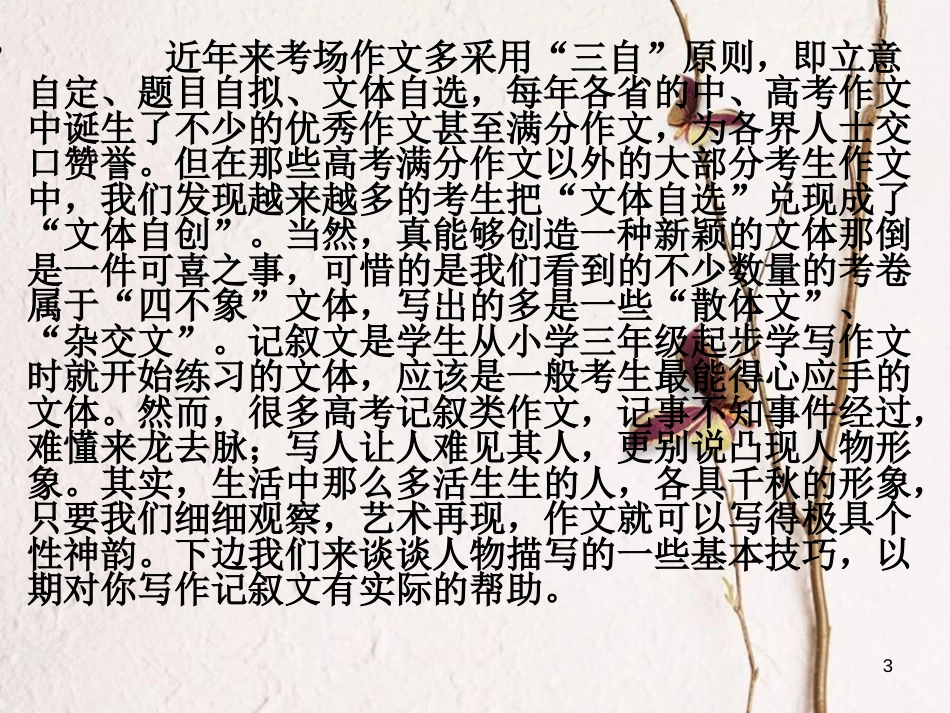 近年来考场作文多采用“三自”原则，即立意
自定、题目自拟、文体自选，每年各省的中、高考作文
中诞生了不少的优秀作文甚至满分作文，为各界人士交
口赞誉。但在那些高考满分作文以外的大部分考生作文
中，我们发现越来越多的考生把“文体自选”兑现成了
“文体自创”。当然，真能够创造一种新颖的文体那倒
是一件可喜之事，可惜的是我们看到的不少数量的考卷
属于“四不象”文体，写出的多是一些“散体文”、
“杂交文”。记叙文是学生从小学三年级起步学写作文
时就开始练习的文体，应该是一般考生最能得心应手的
文体。然而，很多高考记叙类作文，记事不知事件经过，
难懂来龙去脉；写人让人难见其人，更别说凸现人物形
象。其实，生活中那么多活生生的人，各具千秋的形象，
只要我们细细观察，艺术再现，作文就可以写得极具个
性神韵。下边我们来谈谈人物描写的一些基本技巧，以
期对你写作记叙文有实际的帮助。
3